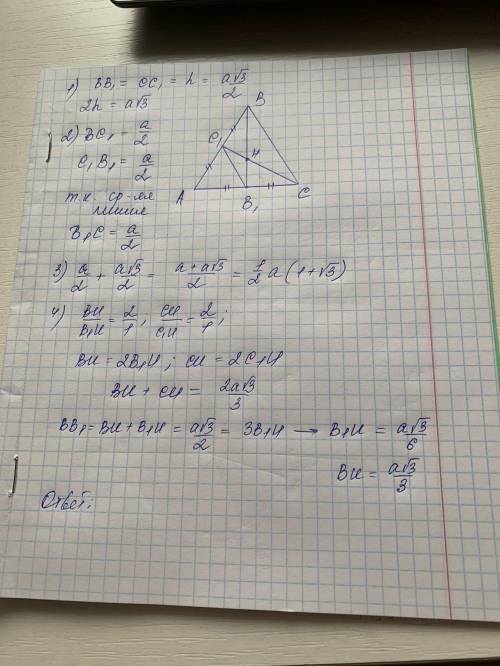 1) BB₁ = CC₁ = h = a√3/2
2h = a√3
2) BC₁ = a/2
C₁B₁ = a/2
т.к. ср-яя
линия
B₁C = a/2
B
C₁
H
A
B₁
C
3) a/2 + a√3/2 = a+a√3/2 = 1/2 a (1+√3)
4) BH/B₁H = 2/1; CH/C₁H = 2/1;
BH = 2B₁H; CH = 2C₁H
BH + CH = 2a√3/3
BB₁ = BH + B₁H = a√3/2 = 3B₁H → B₁H = a√3/6
BH = a√3/3
Ответ: